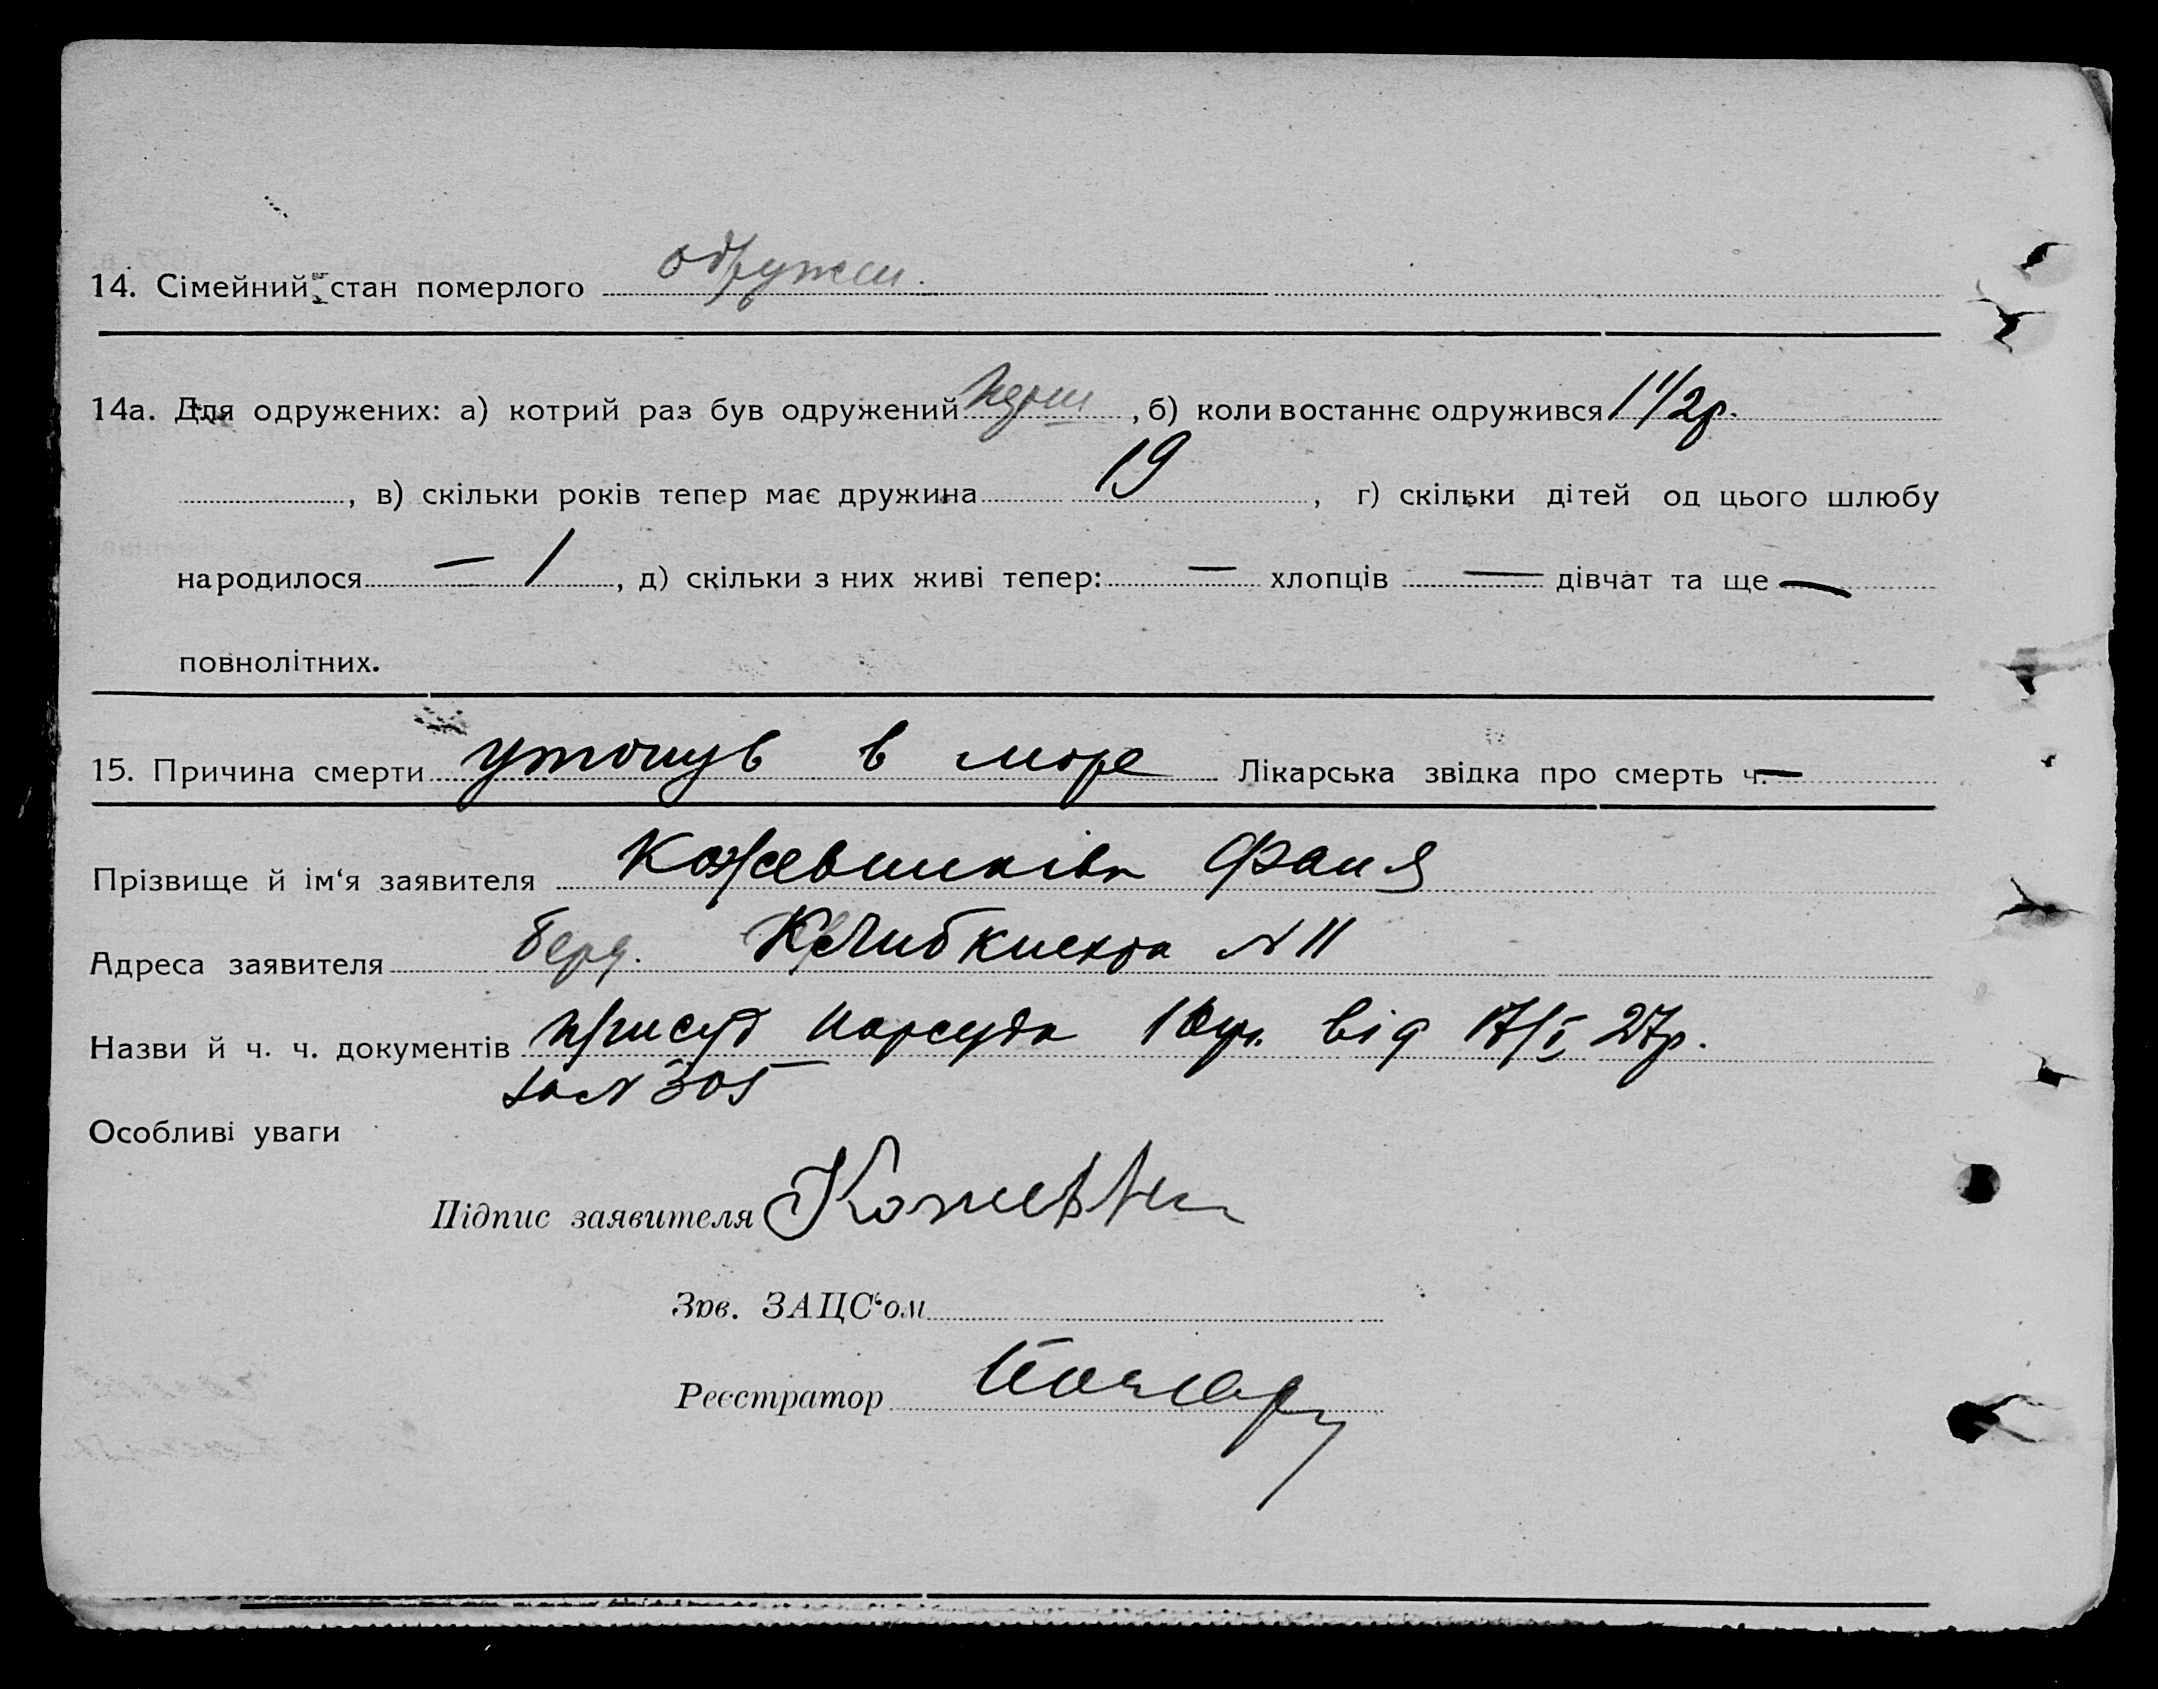 14. Сімейний стан померлого одружен.
14а. Для одружених: а) котрий раз був одружений перш , б) коли востаннє одружився 1 1/2 р.
, в) скільки років тепер має дружина 19 , г) скільки дітей од цього шлюбу
народилося — 1 , д) скільки з них живі тепер: — хлопців — дівчат та ще —
повнолітних.
15. Причина смерти утонув в море Лікарська звідка про смерть ч. —
Прізвище й ім‘я заявителя Кожевниківа Фаня
Адреса заявителя Берд. К Либкнехта № 11
Назви й ч. ч. документів присуд нарсуда від 17/I 27р.
за № 305
Особливі уваги
Підпис заявителя Кожевни
Зав. ЗАЦС‘ом
Реєстратор